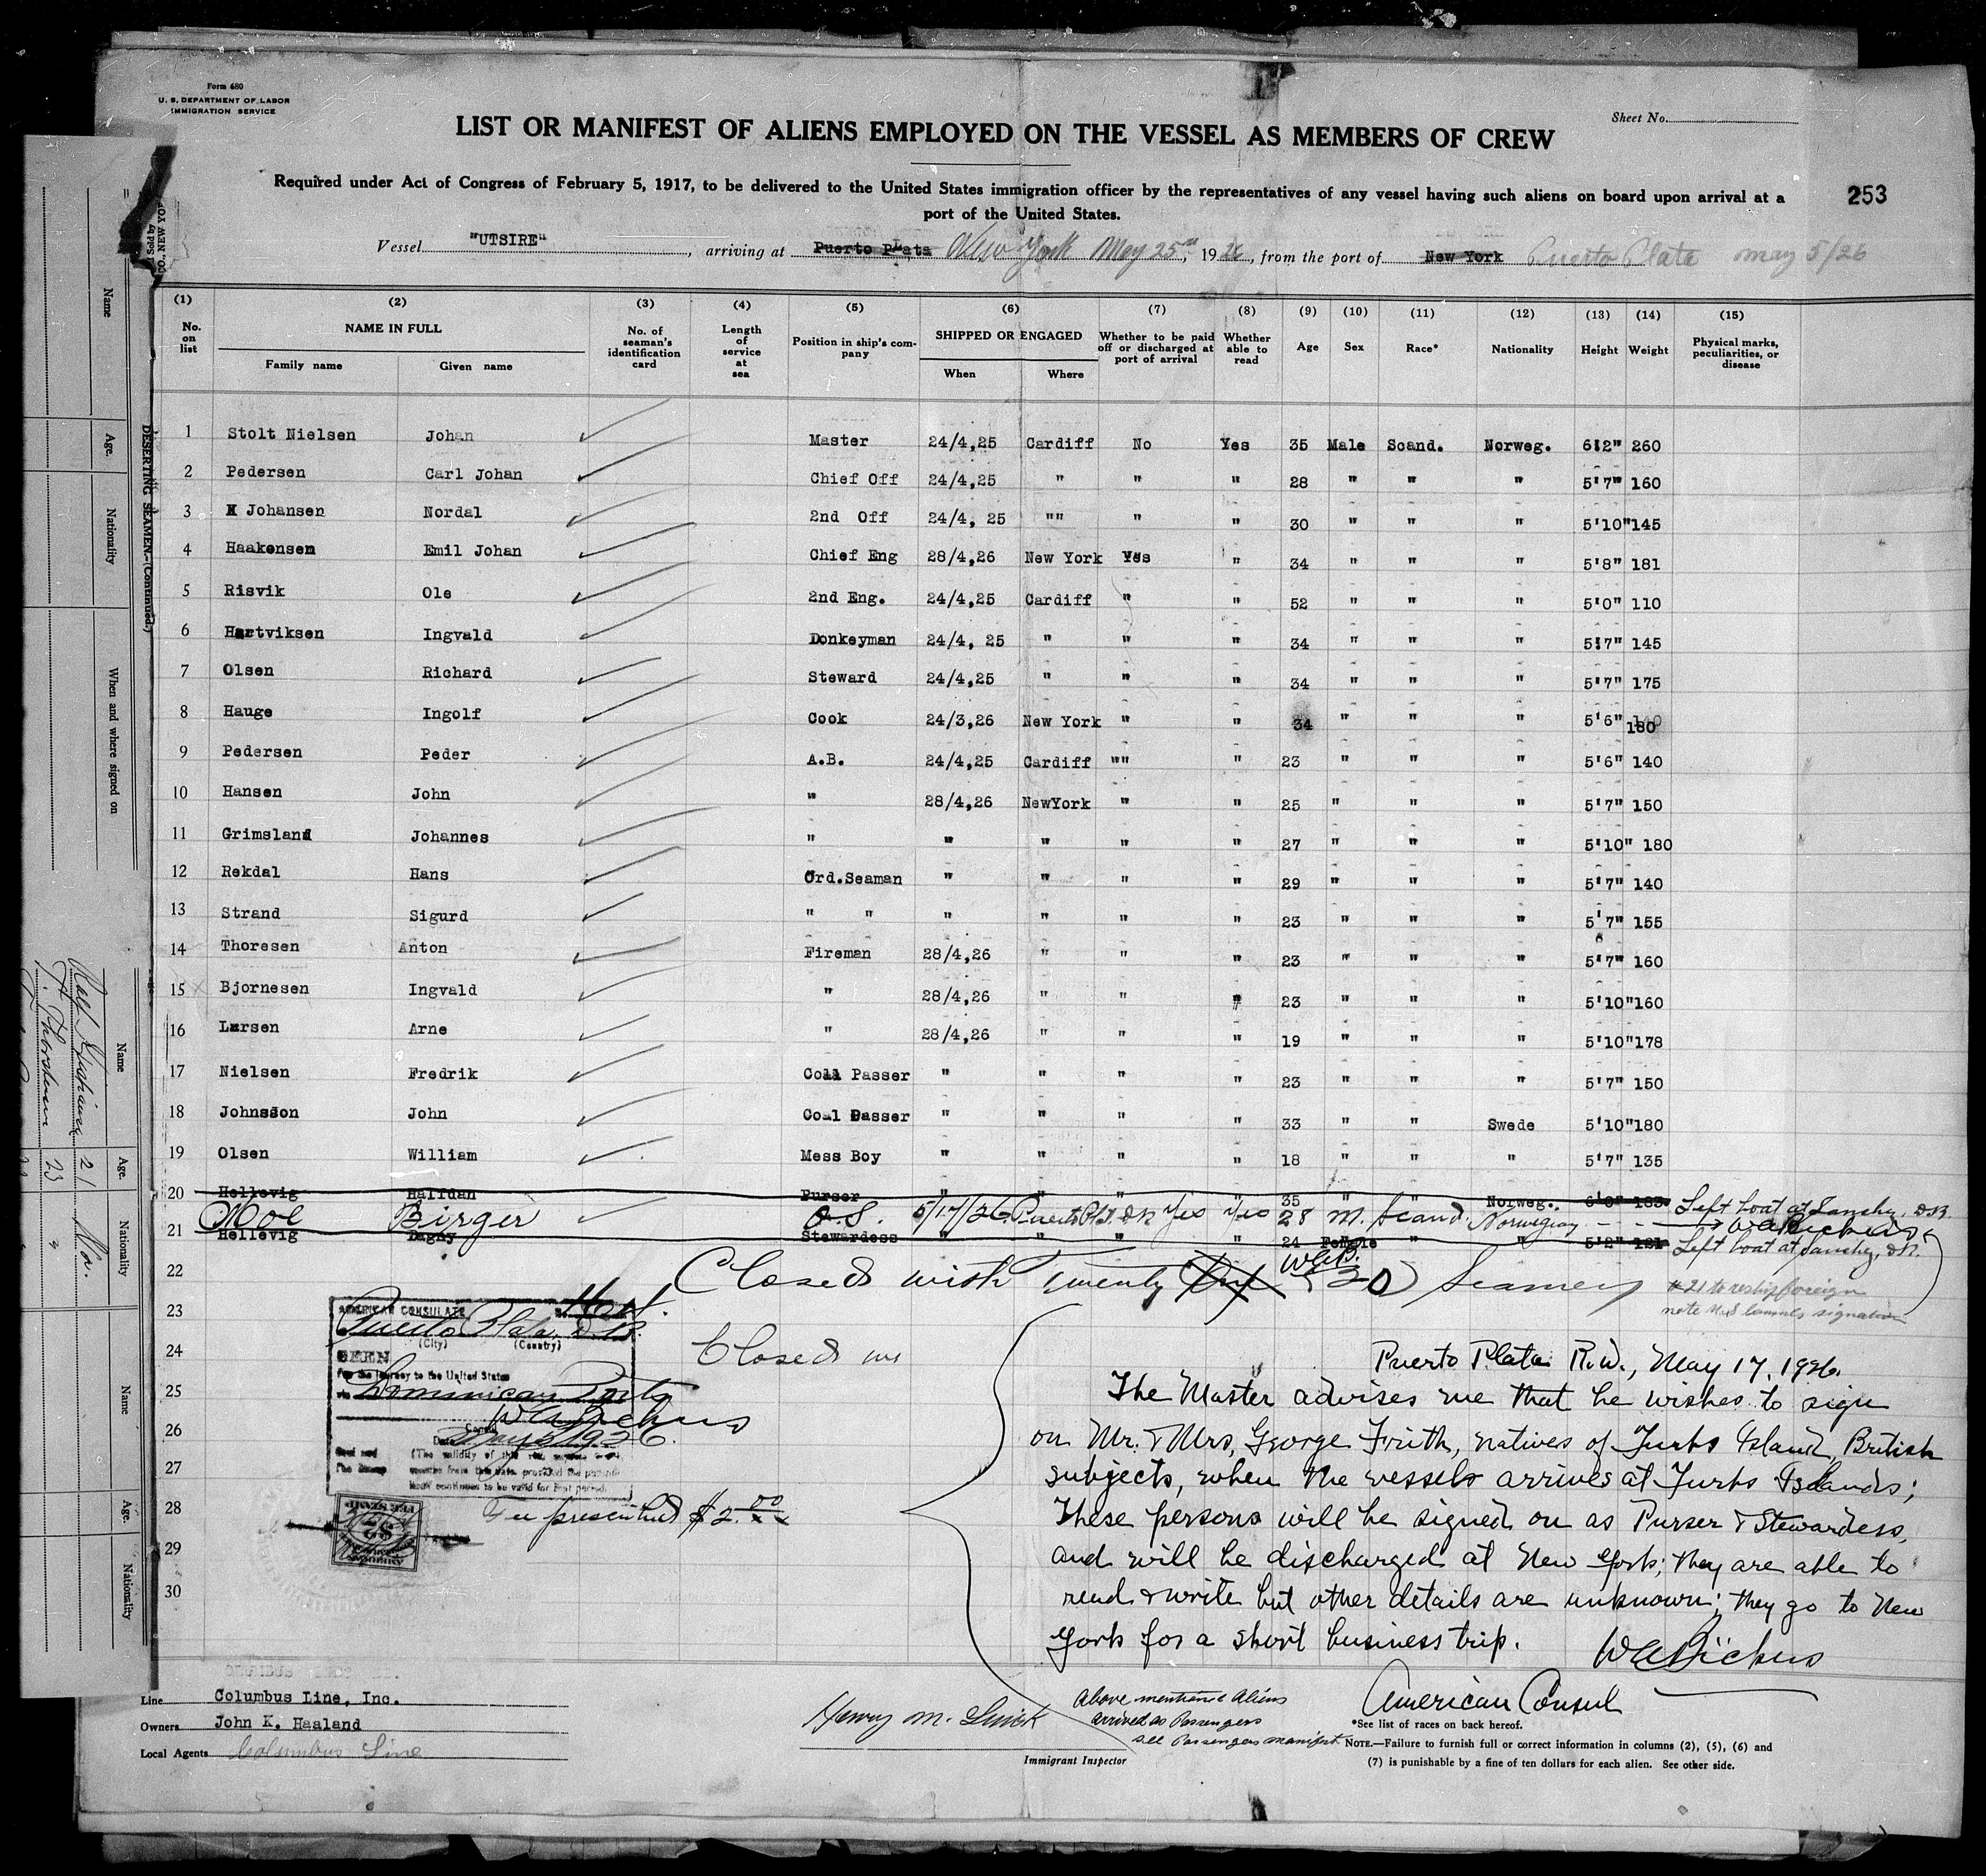 Form 680
U. S. DEPARTMENT OF LABOR
IMMIGRATION SERVICE
Sheet No.
LIST OR MANIFEST OF ALIENS EMPLOYED ON THE VESSEL AS MEMBERS OF CREW
Required under Act of Congress of February 5, 1917, to be delivered to the United States immigration officer by the representatives of any vessel having such aliens on board upon arrival at a
port of the United States.
253
Vessel "UTSIRE", arriving at Puerto Plata New York May 25th, 1926, from the port of New York Puerto Plata May 5/26
(1) (2) (3) (4) (5) (6) (7) (8) (9) (10) (11) (12) (13) (14) (15)
No. on list NAME IN FULL Family name Given name No. of seaman's identification card Length of service at sea Position in ship's company SHIPPED OR ENGAGED When Where Whether to be paid off or discharged at port of arrival Whether able to read Age Sex Race* Nationality Height Weight Physical marks, peculiarities, or disease
1 Stolt Nielsen Johan Master 24/4,25 Cardiff No Yes 35 Male Scand. Norweg. 6'2" 260
2 Pedersen Carl Johan Chief Off 24/4,25 " " " 28 " " " 5'7" 160
3 Johansen Nordal 2nd Off 24/4, 25 "" " " 30 " " " 5'10" 145
4 Haakensen Emil Johan Chief Eng 28/4,26 New York Yes " 34 " " " 5'8" 181
5 Risvik Ole 2nd Eng. 24/4,25 Cardiff " " 52 " " " 5'0" 110
6 Hartviksen Ingvald Donkeyman 24/4, 25 " " " 34 " " " 5'7" 145
7 Olsen Richard Steward 24/4,25 " " " 34 " " " 5'7" 175
8 Hauge Ingolf Cook 24/3,26 New York " " 34 " " " 5'6" 180
9 Pedersen Peder A.B. 24/4,25 Cardiff "" " 23 " " " 5'6" 140
10 Hansen John " 28/4,26 NewYork " " 25 " " " 5'7" 150
11 Grimsland Johannes " " " " " 27 " " " 5'10" 180
12 Rekdal Hans Ord.Seaman " " " " 29 " " " 5'7" 140
13 Strand Sigurd " " " " " " 23 " " " 5'7" 155
14 Thoresen Anton Fireman 28/4,26 " " " 23 " " " 5'7" 160
15 Bjornesen Ingvald " 28/4,26 " " " 23 " " " 5'10" 160
16 Larsen Arne " 28/4,26 " " " 19 " " " 5'10" 178
17 Nielsen Fredrik Coal Passer " " " " 23 " " " 5'7" 150
18 Johnsson John Coal Passer " " " " 33 " " Swede 5'10" 180
19 Olsen William Mess Boy " " " " 18 " " " 5'7" 135
20 Hellevig Halfdan Purser " " " " 35 " " Norweg. 6'0" 183 Left boat at Sanchez, D.R.
Moe Birger O.S. 5/17/26 Puerto Plt. D.R. Yes Yes 28 M. Scand. Norwegian
21 Hellevig Dagny Stewardess " " " " 24 Female " " 5'2" 121 Left boat at Sanchez, D.R.
22 Closed with Twenty (20) Seamen
#21 to reship foreign
23
24 Closed
25
26
27
28
29
30
AMERICAN CONSULATE
Puerto Plata, D.R.
(City) (Country)
SEEN
For the Journey to the United States
via Dominican Ports
W A Bickers
Consul
1926
Fee presented $2.00
Puerto Plata R.D., May 17, 1926.
The Master advises me that he wishes to sign
on Mr. & Mrs. George Frith, natives of Turks Island, British
subjects, when the vessels arrives at Turks Islands;
These persons will be signed on as Purser & Stewardess,
and will be discharged at New York; they are able to
read & write but other details are unknown; they go to New
York for a short business trip.
W A Bickers
American Consul
Line Columbus Line, Inc.
Owners John K. Haaland
Local Agents Columbus Line
Henry M.
Immigrant Inspector
Above mentioned Aliens
arrived as Passengers
see Passengers manifest.
*See list of races on back hereof.
NOTE.—Failure to furnish full or correct information in columns (2), (5), (6) and
(7) is punishable by a fine of ten dollars for each alien. See other side.
DESERTING SEAMEN.—(Continued.)
Name
Age.
Nationality
When and where signed on
Name
Age.
Nationality
Name
Age.
Nationality
21 Nor.
Thorsten 23 "